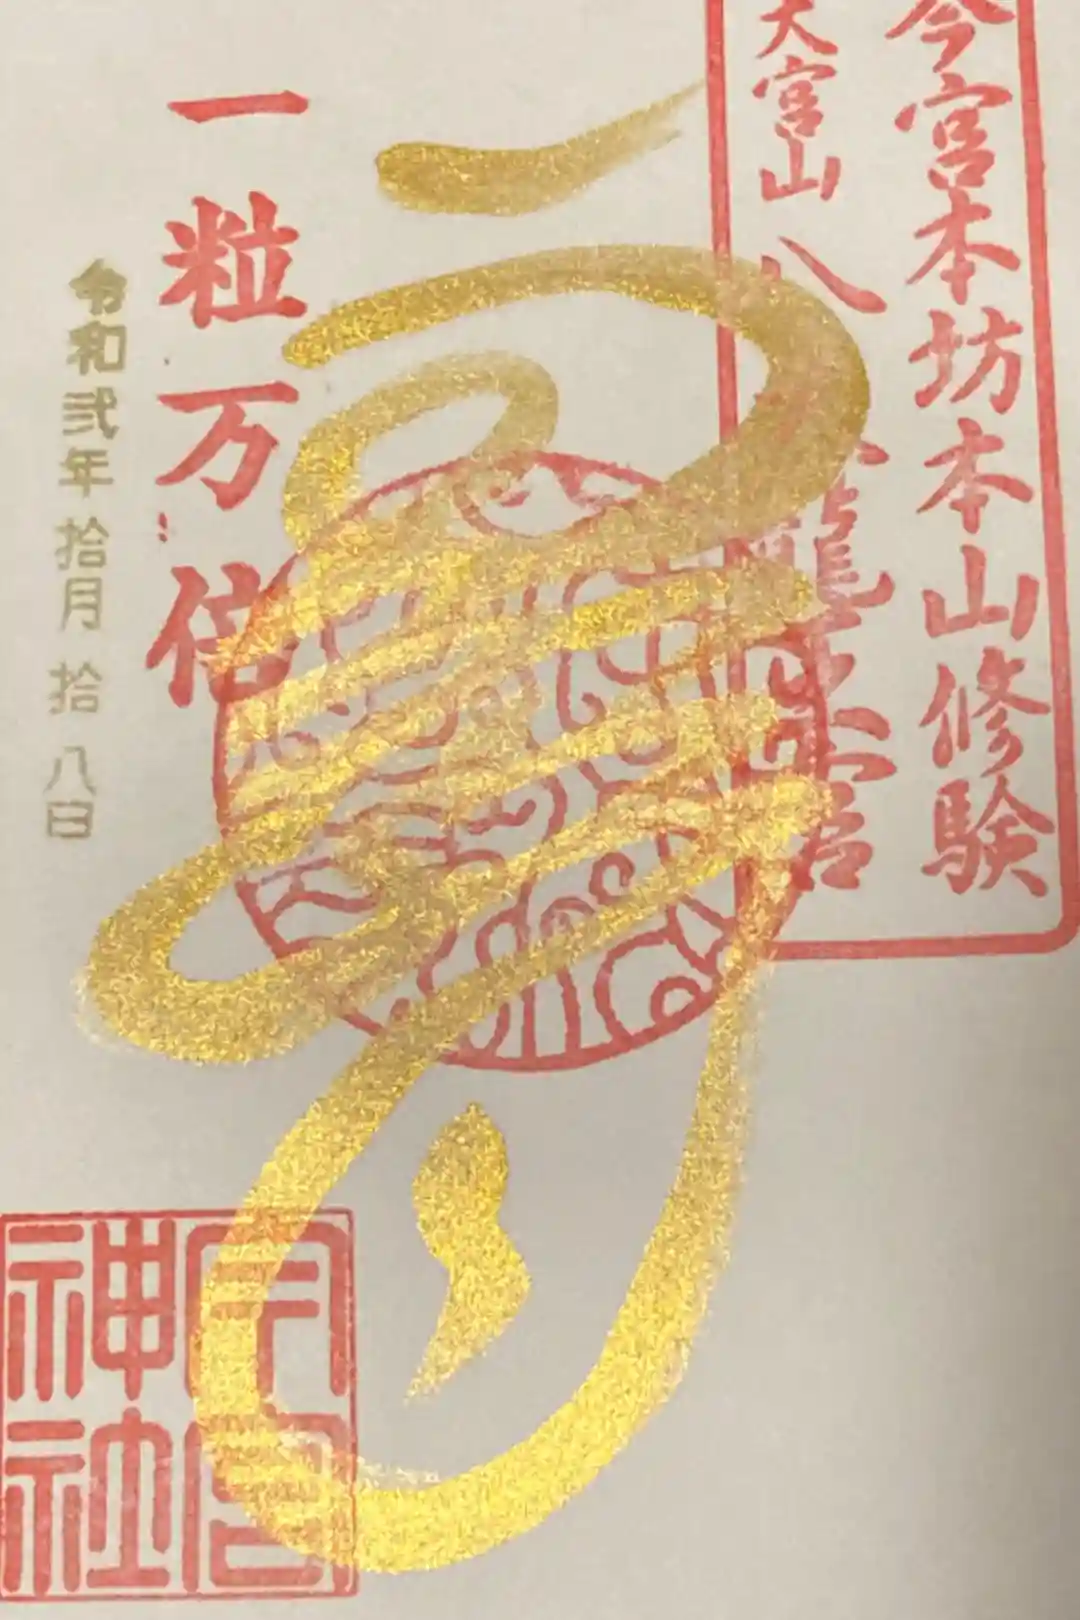 今宮本坊本山修験
大宮山 八大龍王宮
壽
一粒万倍
令和弐年拾月拾八日
今宮
神社